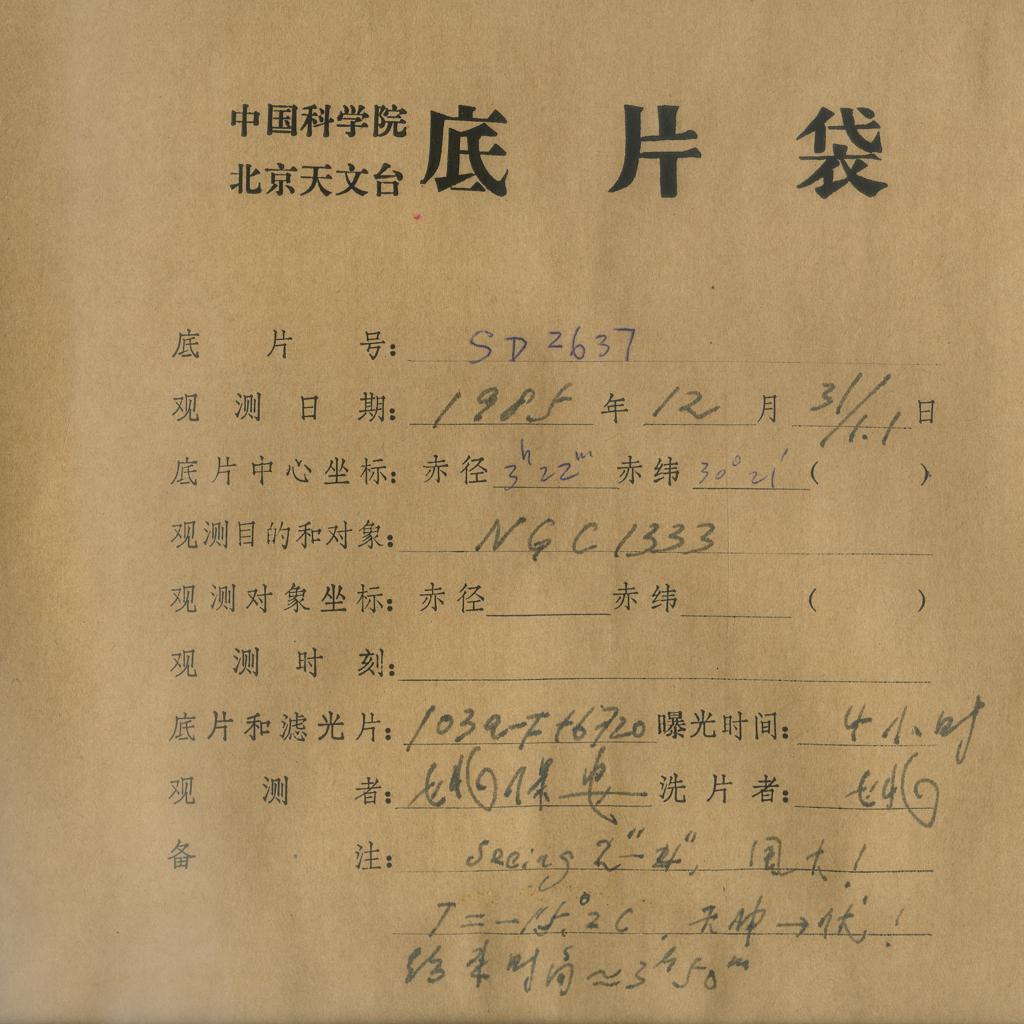 中国科学院
北京天文台
底片袋
底片号: SD 2637
观测日期: 1985年12月31/1.1日
底片中心坐标: 赤径 3h22m 赤纬 30°21′ ( )
观测目的和对象: NGC 1333
观测对象坐标: 赤径 赤纬 ( )
观测时刻:
底片和滤光片: 103a-F+6720 曝光时间: 4小时
观测者: 洗片者:
备注: Seeing
T=-15.°2C,
时间≈3h50m